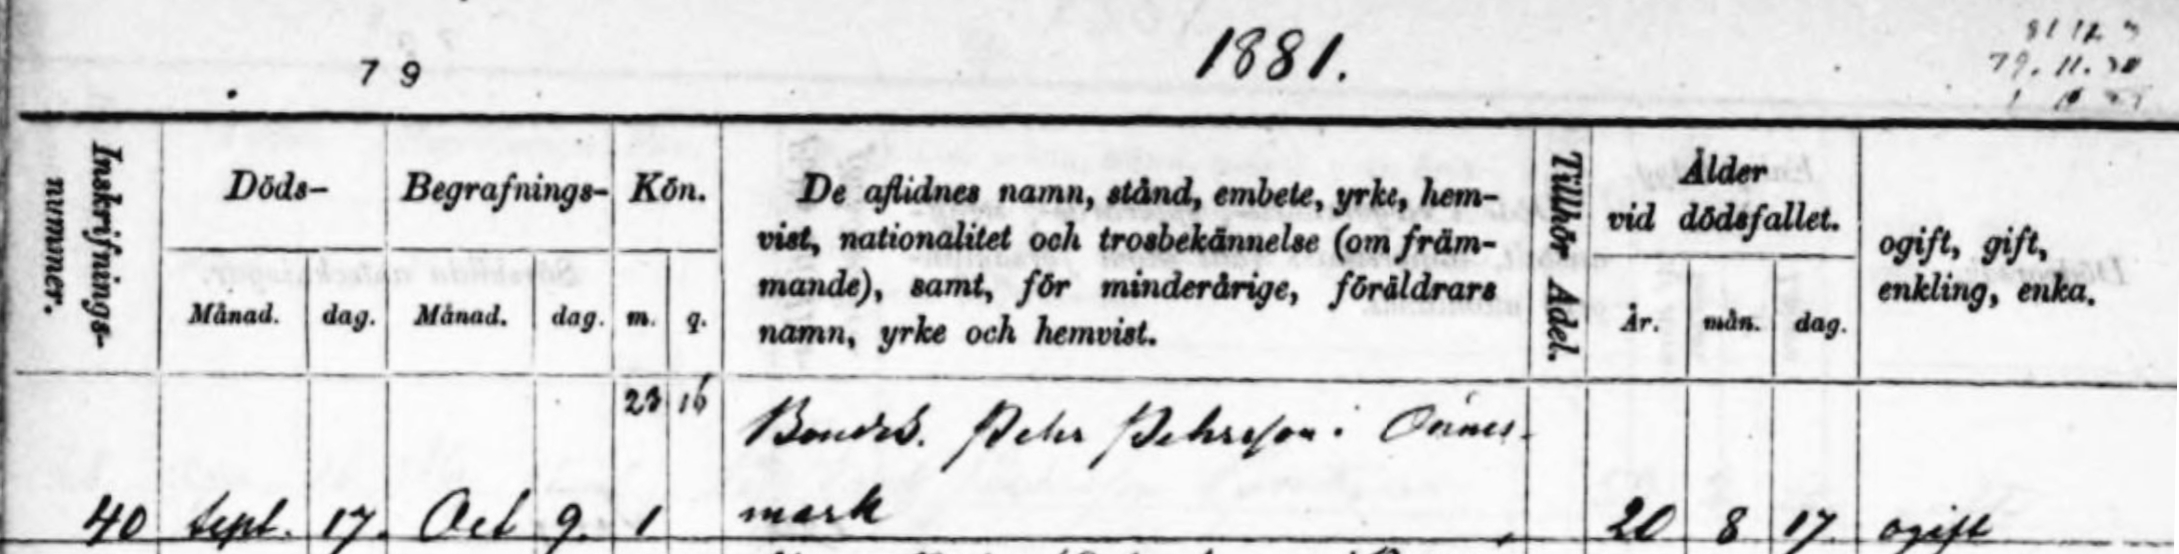 1881.
79
Inskrifnings-
nummer.
Döds-
Månad.
dag.
Begrafnings-
Månad.
dag.
Kön.
m.
q.
De aflidnes namn, stånd, embete, yrke, hem-
vist, nationalitet och trosbekännelse (om främ-
mande), samt, för minderårige, föräldrars
namn, yrke och hemvist.
Tillhör Adel.
Ålder
vid dödsfallet.
År.
mån.
dag.
ogift, gift,
enkling, enka.
23 16
Pehr Pehrsson i
40 Sept. 17. Oct 9. 1 mark 20 8 17 ogift